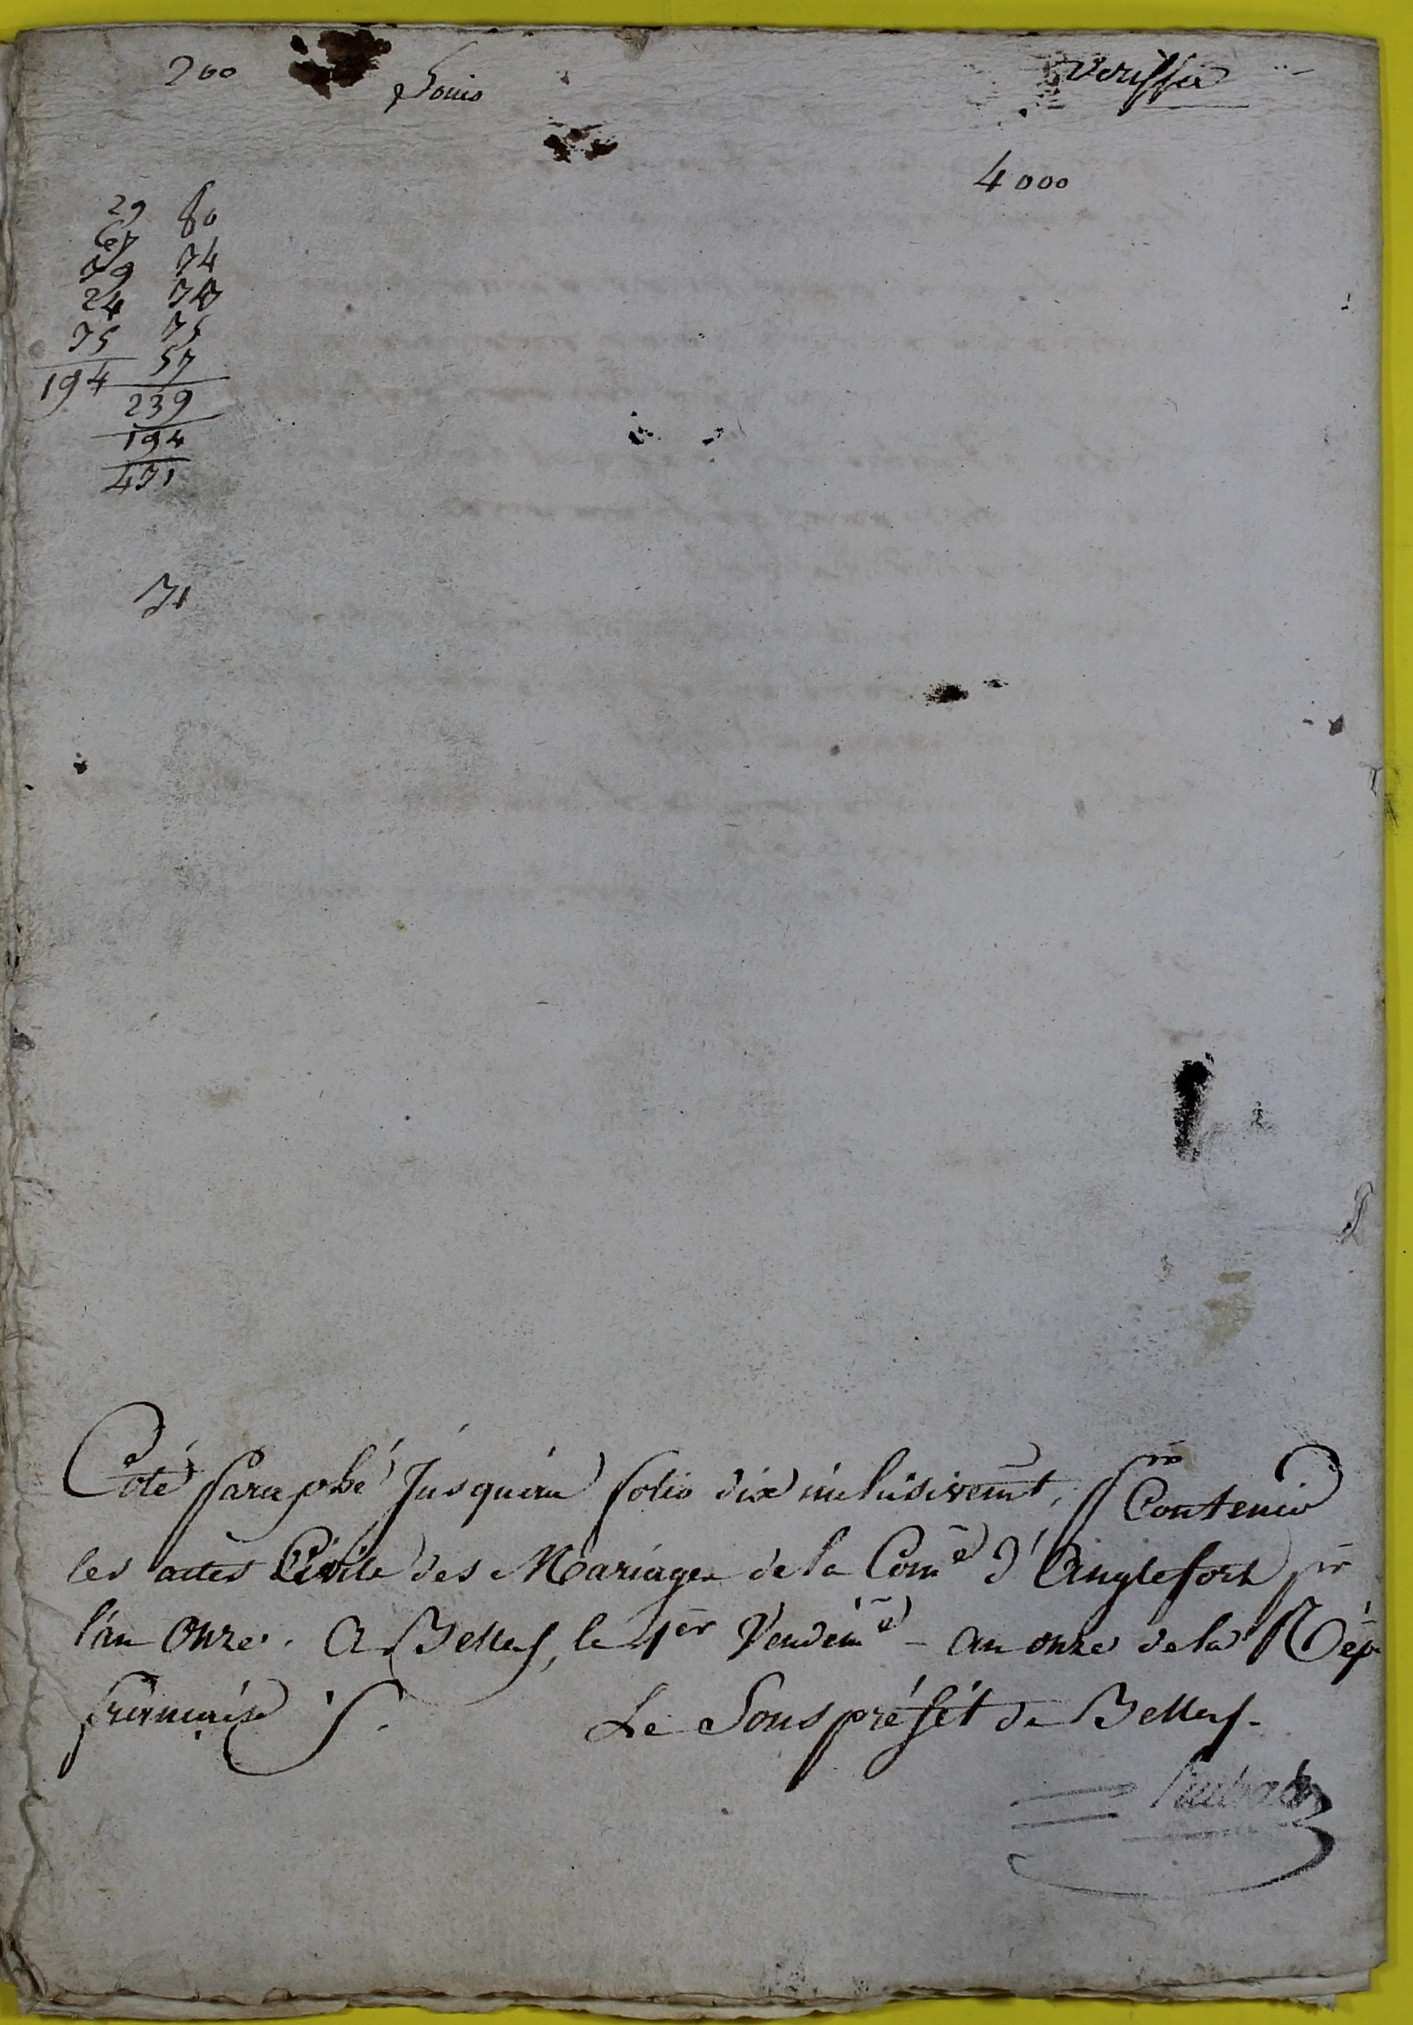 200
Louis
Veriffié
4000
29 80
67 74
79 70
24 75
75 57
194
239
194
471
71
Coté paraphé Jusquau folio dix inclusivemt, pr Contenir
les actes Civile des Mariages de la Come d'Anglefort pr
l'an Onze. A Belley, le 1er Vendeme - an onze de la Rép
francaise.
Le Sous préfet de Belley.